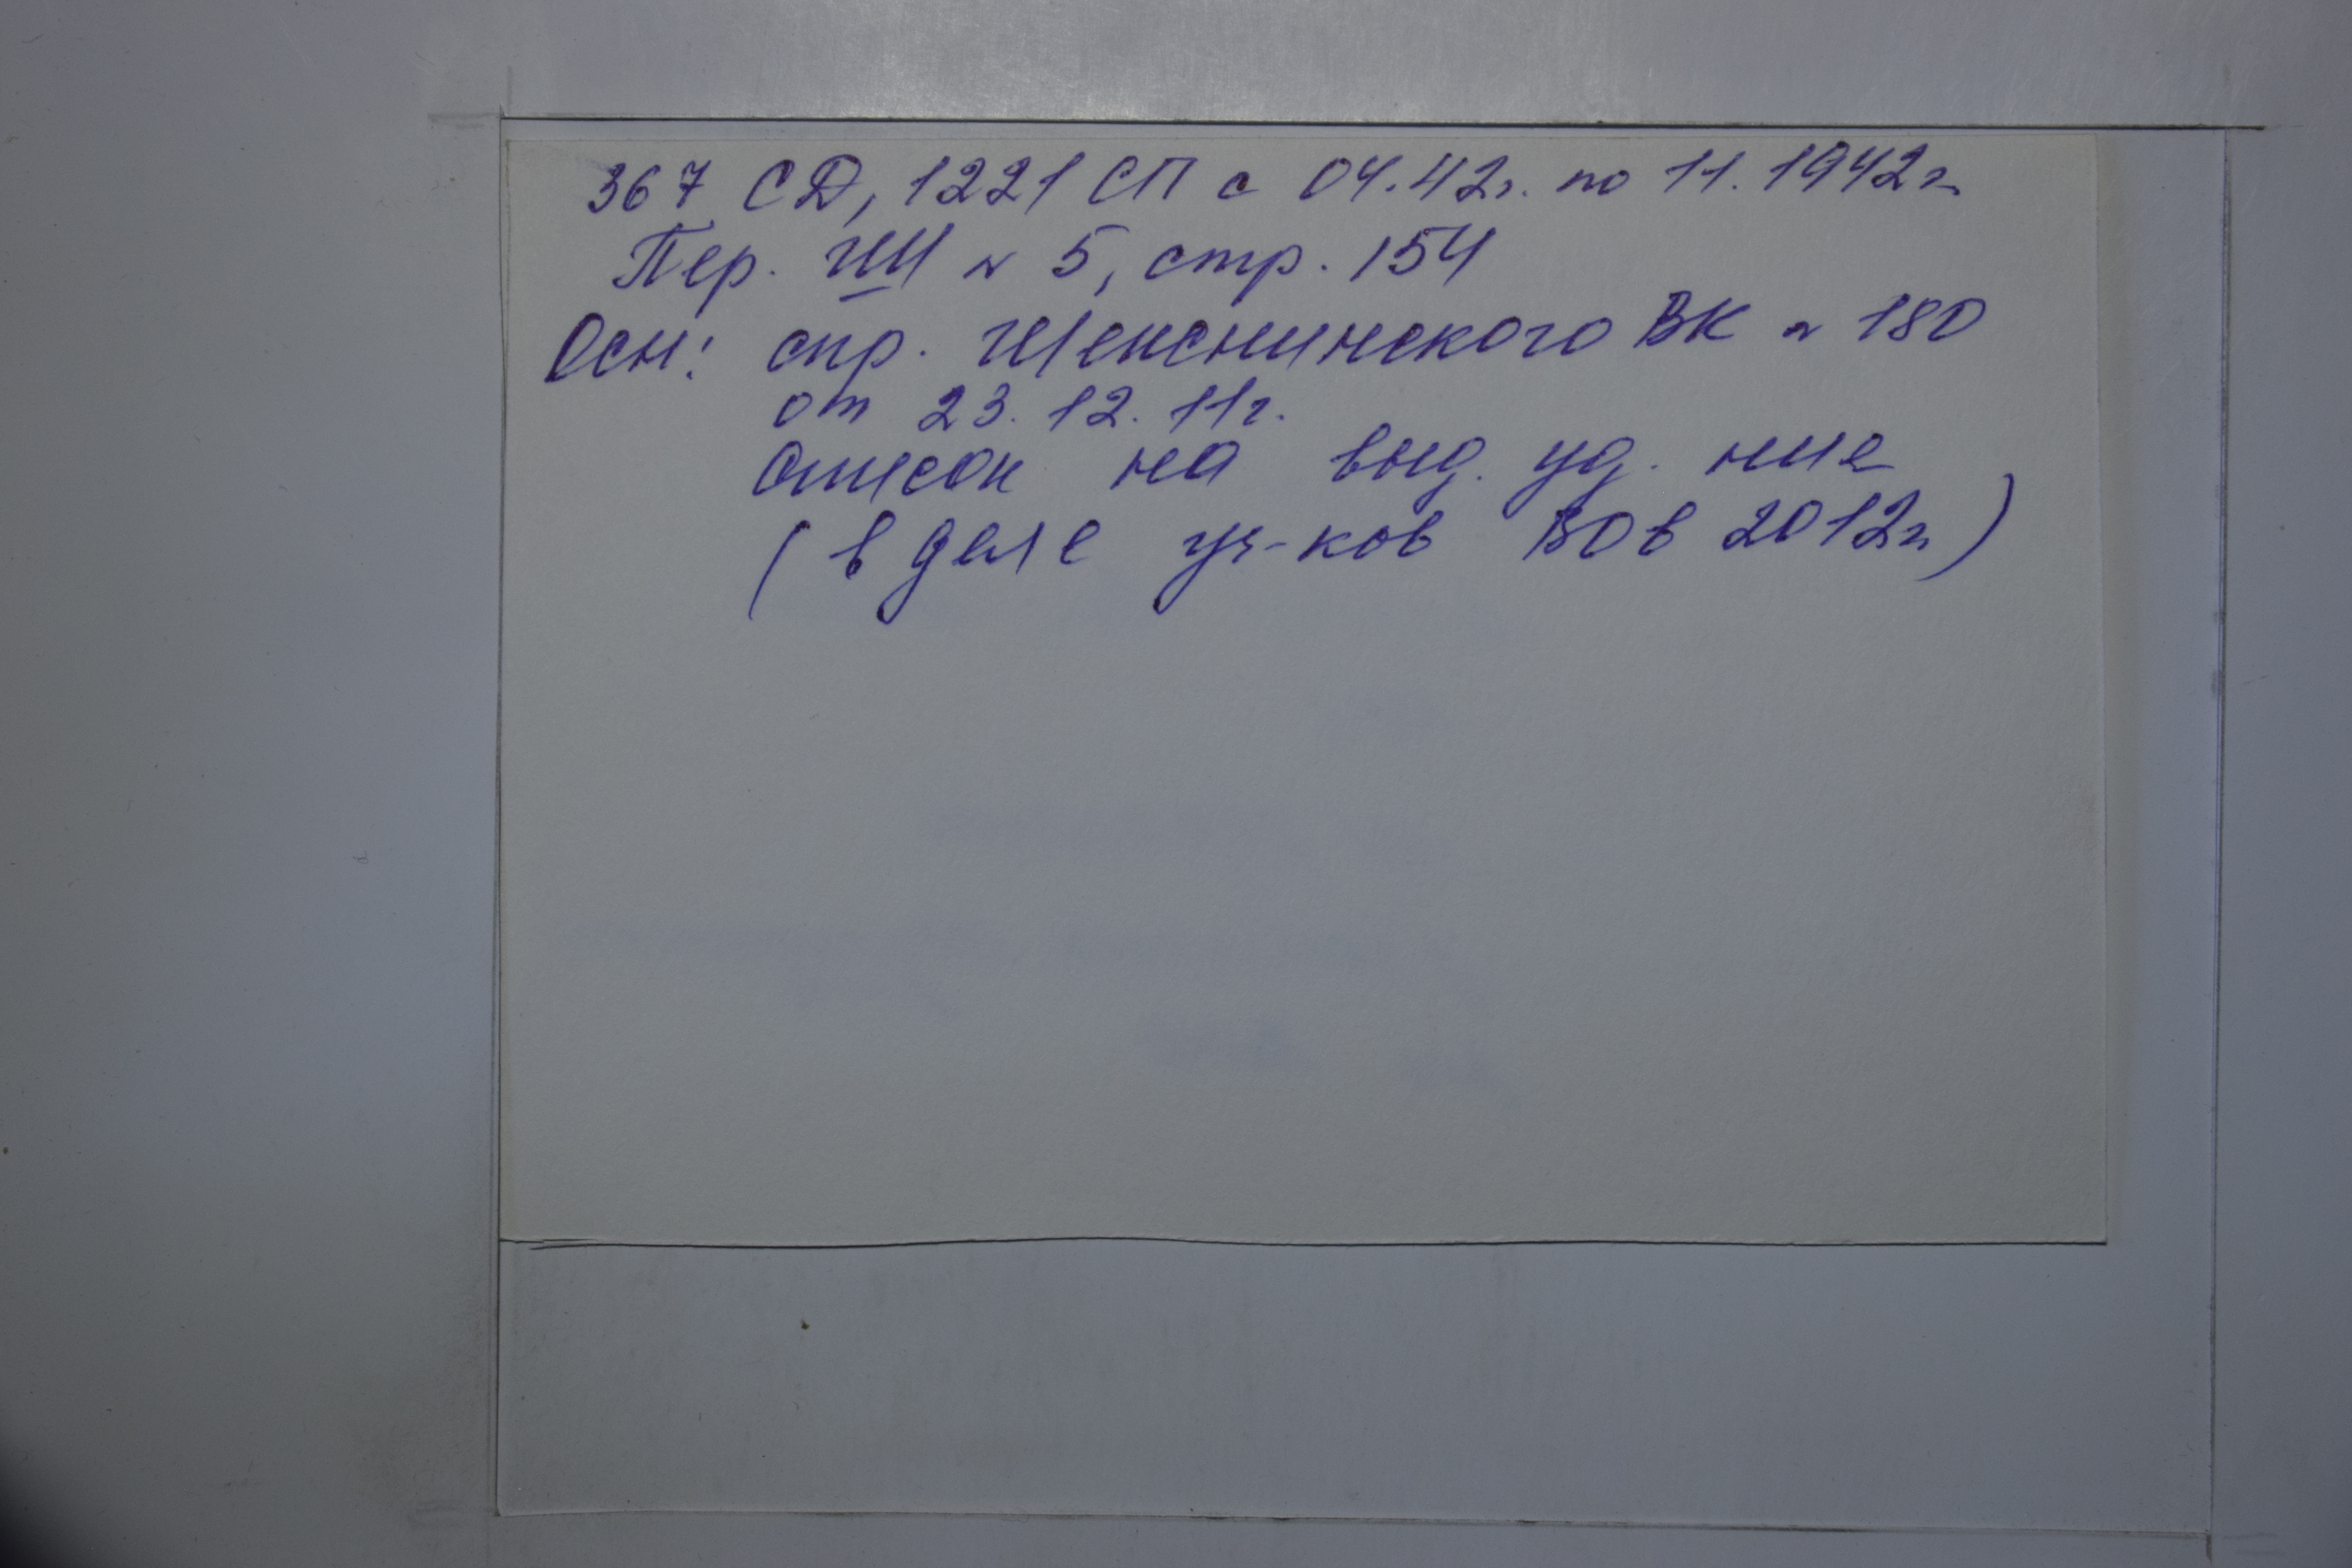 367 СД, 1221 СП с 04.42г. по 11.1942г.
Пер. ГШ № 5, стр. 154
Осн: спр. Шекснинского ВК № 180
от 23.12.11г.
Список на выд. уд. ние
(в деле уч-ков ВОв 2012г.)